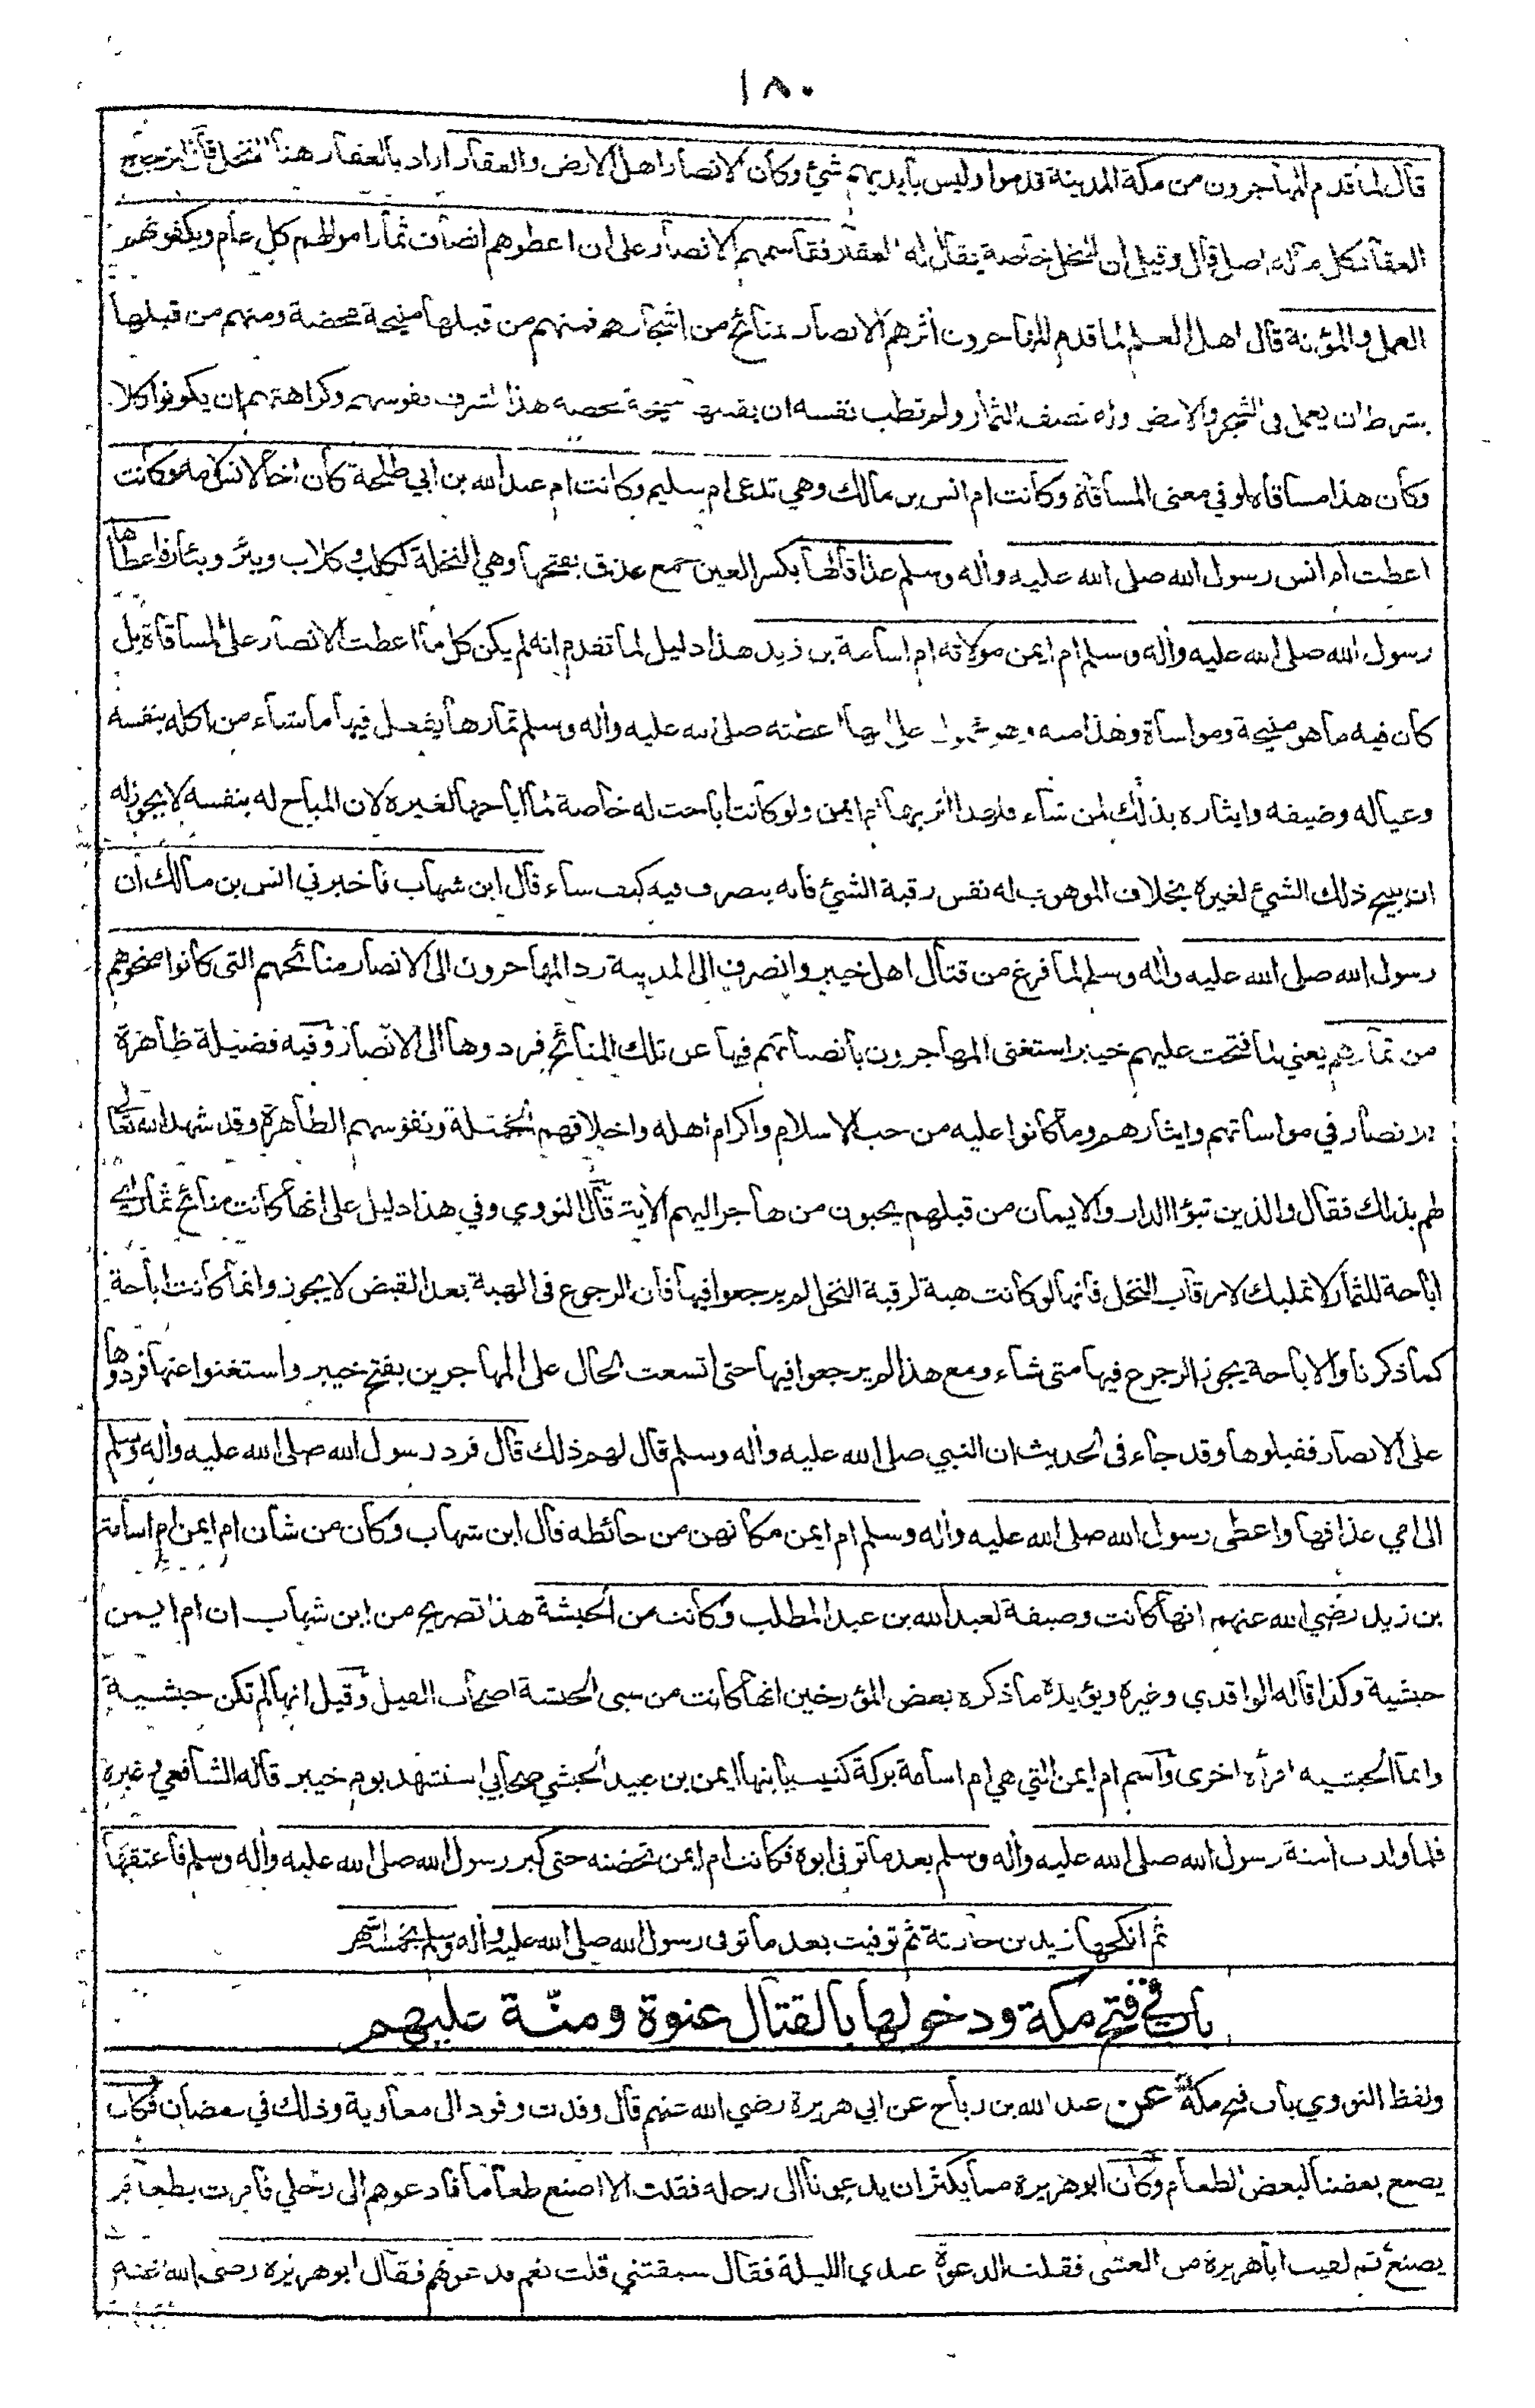 ١٨٠
قال لما قدم المهاجرون من مكة المدينة قدموا وليس بأيديهم شئ وكان الانصار اهل الارض والعقار اراد بالعقار هنا النخل قال الزجاج
العقار كل ماله اصل قال وقيل ان النخل خاصة يقال له العقار فقاسمهم الانصار على ان اعطوهم انصاف ثمار اموالهم كل عام ويكفونهم
العمل والمؤنة قال اهل العلم لما قدم المهاجرون آثرهم الانصار بمنائح من اشجارهم فمنهم من قبلها منيحة محضة ومنهم من قبلها
بشرط ان يعمل فى الشجر والارض وله نصف الثمار ولم تطب نفسه ان يقبلها منيحة محضه هذا لشرف نفوسهم وكراهتهم ان يكونوا كلا
وكان هذا مساقاة او في معنى المساقاة وكانت ام انس بن مالك وهي تدعى ام سليم وكانت ام عبد الله بن ابي طلحة كان اخا لانس لامه وكانت
اعطت ام انس رسول الله صلى الله عليه وأله وسلم عذاقا لها بكسر العين جمع عذق بفتحها وهي النخلة ككلب وكلاب وبئر وبئار فاعطاها
رسول الله صلى الله عليه وأله وسلم ام ايمن مولاته ام اسامة بن زيد هذا دليل لما تقدم انه لم يكن كل ما اعطت الانصار على المساقاة بل
كان فيه ما هو منيحة ومواساة وهذا منه وهو محمول على انها اعطته صلى الله عليه وأله وسلم ثمارها يفعل فيها ما شاء من اكله بنفسه
وعياله وضيفه وايثاره بذلك لمن شاء فلهذا آثر بها ام ايمن ولو كانت اباحت له خاصة لما اباحها لغيره لان المباح له بنفسه لا يجوز له
ان يبيح ذلك الشئ لغيره بخلاف الموهوب له نفس رقبة الشئ فانه يتصرف فيه كيف شاء قال ابن شهاب فاخبرني انس بن مالك ان
رسول الله صلى الله عليه وأله وسلم لما فرغ من قتال اهل خيبر وانصرف الى المدينة رد المهاجرون الى الانصار منائحهم التى كانوا منحوهم
من ثمارهم يعني لما فتحت عليهم خيبر استغنى المهاجرون بانصبائهم فيها عن تلك المنائح فردوها الى الانصار وفيه فضيلة ظاهرة
للانصار في مواساتهم وايثارهم وما كانوا عليه من حب الاسلام واكرام اهله واخلاقهم الجميلة ونفوسهم الطاهرة وقد شهد الله تعالى
لهم بذلك فقال والذين تبوؤا الدار والايمان من قبلهم يحبون من هاجر اليهم الأية قال النووي وفي هذا دليل على انها كانت منائح ثمار اي
اباحة للثمار لا تمليك لارقاب النخل فانها لو كانت هبة لرقبة النخل لم يرجعوا فيها فان الرجوع فى الهبة بعد القبض لا يجوز وانما كانت اباحة
كما ذكرنا والاباحة يجوز الرجوع فيها متى شاء ومع هذا لم يرجعوا فيها حتى اتسعت الحال على المهاجرين بفتح خيبر واستغنوا عنها فردوها
على الانصار فقبلوها وقد جاء فى الحديث ان النبي صلى الله عليه وأله وسلم قال لهم ذلك قال فرد رسول الله صلى الله عليه وأله وسلم
الى امي عذاقها واعطى رسول الله صلى الله عليه وأله وسلم ام ايمن مكانهن من حائطه قال ابن شهاب وكان من شان ام ايمن ام اسامة
بن زيد رضي الله عنهم انها كانت وصيفة لعبد الله بن عبد المطلب وكانت من الحبشة هذا تصريح من ابن شهاب ان ام ايمن
حبشية وكذا قاله الواقدي وغيره ويؤيده ما ذكره بعض المؤرخين انها كانت من سبى الحبشة اصحاب الفيل وقيل انها لم تكن حبشية
وانما الحبشيه امرأة اخرى واسم ام ايمن التي هي ام اسامة بركة كنيت بابنها ايمن بن عبيد الحبشي صحابي استشهد يوم خيبر قاله الشافعي وغيره
فلما ولدت أمنة رسول الله صلى الله عليه وأله وسلم بعد ما توفى ابوه فكانت ام ايمن تحضنه حتى كبر رسول الله صلى الله عليه وأله وسلم فاعتقها
ثم انكحها زيد بن حارثة ثم توفيت بعد ما توفى رسول الله صلى الله عليه وأله وسلم بخمسة اشهر
باب فى فتح مكة ودخولها بالقتال عنوة ومنّة عليهم
ولفظ النووي باب فتح مكة عن عبد الله بن رباح عن ابي هريرة رضي الله عنهم قال وفدت وفود الى معاوية وذلك في رمضان فكان
يصنع بعضنا لبعض الطعام وكان ابو هريرة مما يكثر ان يدعونا الى رحله فقلت الا اصنع طعاما فادعوهم الى رحلي فامرت بطعام
يصنع ثم لقيت ابا هريرة من العشى فقلت الدعوة عندي الليلة فقال سبقتني قلت نعم فدعوتهم فقال ابو هريرة رضى الله عنه